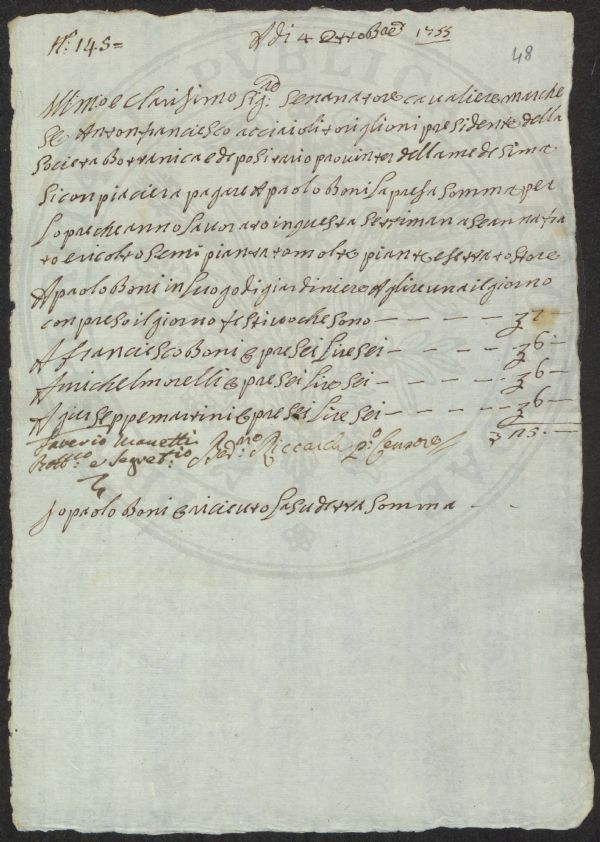 N.º 145=
A di 4 Ottobre 1755
48
Ill.mo e Clarisimo Sig.re Senanatore cavaliere marche
se Antonfranciesco acciaioli toriglioni presidente della
Societa Bottanica e depositario provinter della medesima
si conpiaciera pagare A paolo Boni la presa somma per
Lopre che anno lavorato in questa settimana seannafia
to e ricolto semi piantato molte piante e serrato store
A paolo Boni in luogo di giardiniere A lire una il giorno
conpreso il giorno festivo che sono — — — — 7 —
A franciesco Boni opre sei lire sei — — — — 6 —
A michel morelli opre sei lire sei — — — — 6 —
A giuseppe martini opre sei lire sei — — — — 6 —
Saverio Manetti
Bott.co e Segret.io
Riccardi P.o Censore
25. —
Io paolo Boni o riceuto la sudetta somma — —
PUBLIC